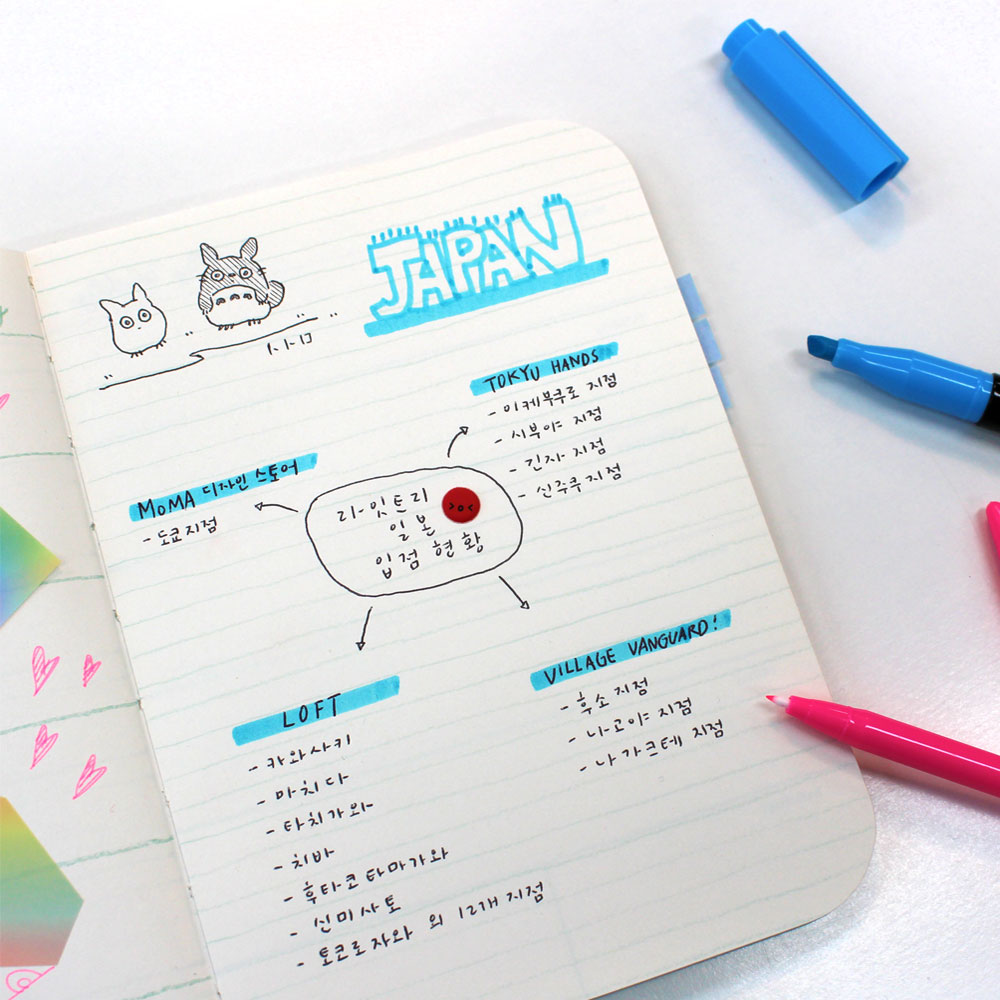 JAPAN
TOKYU HANDS
- 이케부쿠로 지점
- 시부야 지점
- 긴자 지점
- 신주쿠 지점
MoMA 디자인 스토어
- 도쿄지점
리-잇트리
일본
입점 현황
VILLAGE VANGUARD!
- 후소 지점
- 나고야 지점
- 나가크테 지점
LOFT
- 카와사키
- 마치다
- 타치가와
- 치바
- 후타코타마가와
- 신미사토
- 토코로자와 외 12개 지점